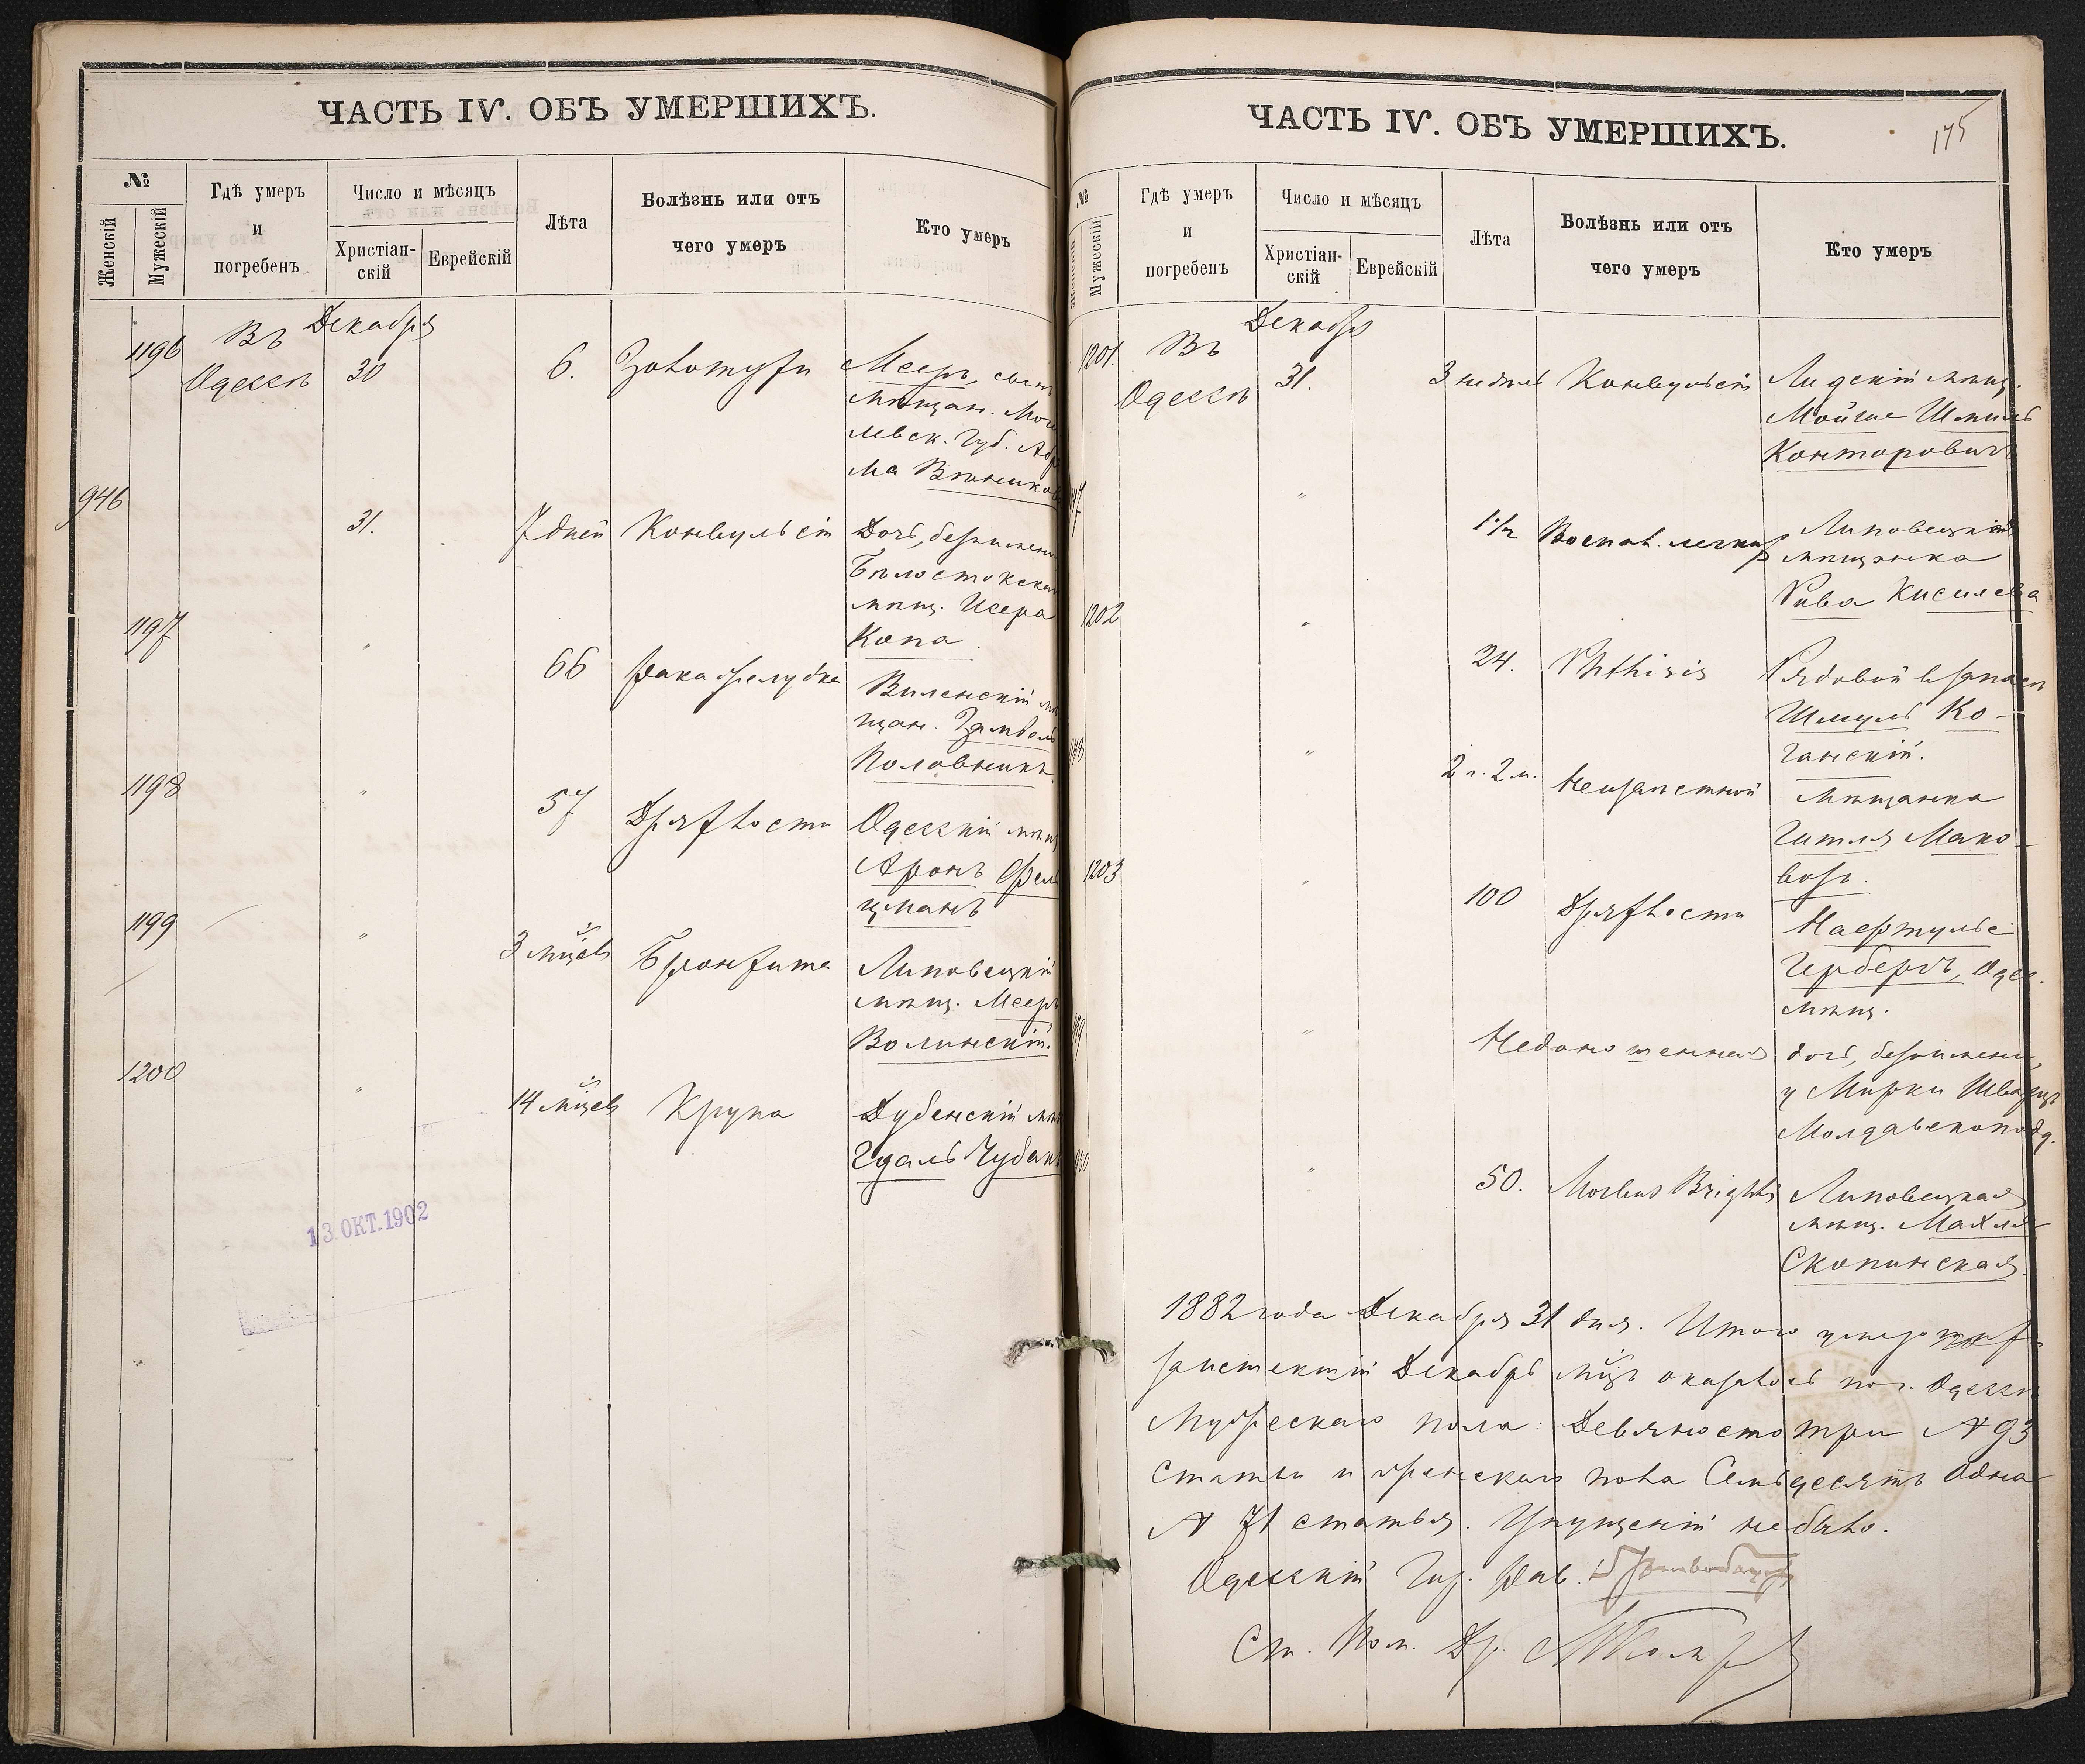 ЧАСТЬ IV. ОБЪ УМЕРШИХЪ.
№
Женскій
Мужескій
Гдѣ умеръ
и
погребенъ
Число и мѣсяцъ
Христіан-
скій
Еврейскій
Лѣта
Болѣзнь или отъ
чего умеръ
Кто умеръ
Въ Декабря
1196 Одессѣ 30 6. Золотухи Мееръ, сынъ
мѣщан. Моги
левск. Губ. Абра
ма Вѣнников
946 31. 7 дней Конвульсій Дочь, безъимен
Бѣлостокска
мѣщ. Исера
Копа.
1197 " 66 Рака желудка Виленскій мѣ
щан. Замвель
Половникъ.
1198 " 57 Дряхлости Одесскій мѣщ
Аронъ Фель
цманъ
1199 " 3 мѣцевъ Бронхита Липовецкій
мѣщ. Мееръ
Волинскій.
1200 " 14 мѣцевъ Крупа Дубенскій мѣщ
Гдаль Чубакъ
13 ОКТ. 1902
ЧАСТЬ IV. ОБЪ УМЕРШИХЪ.
175
№
Женскій
Мужескій
Гдѣ умеръ
и
погребенъ
Число и мѣсяцъ
Христіан-
скій
Еврейскій
Лѣта
Болѣзнь или отъ
чего умеръ
Кто умеръ
Въ Декабря
1201. Одессѣ 31. 3 недѣль Конвульсій Лидскій мѣщ.
Мойше Шмиль
Конторовичъ
47 " 1 1/2 Воспал. легких Липовецкая
мѣщанка
Рива Киселева
1202 " 24. Phthisis Рядовой в запасѣ
Шмуль Ко-
ганскій.
48 " 2 г. 2 м. Неизвѣстной мѣщанка
Гитля Мако-
возъ.
1203 " 100 Дряхлости Нафтуль
Герберъ, Одес.
мѣщ.
49 " Недоношенная дочь, безъимен.,
у Мирки Шварцъ
Молдавскопод.
950 " 50. Morbus Brighti Липовецкая
мѣщ. Махля
Скопинская.
1882 года Декабря 31 дня. Итого умерших
за истекшій Декабрь мѣцъ оказалось по г. Одессѣ
Мужескаго пола: Девяносто три № 93
статьи и женскаго пола Семьдесятъ Одна
№ 71 статья. Упущеній не было.
Одесскій Гор. Рав.
Ст. Пом. Др.